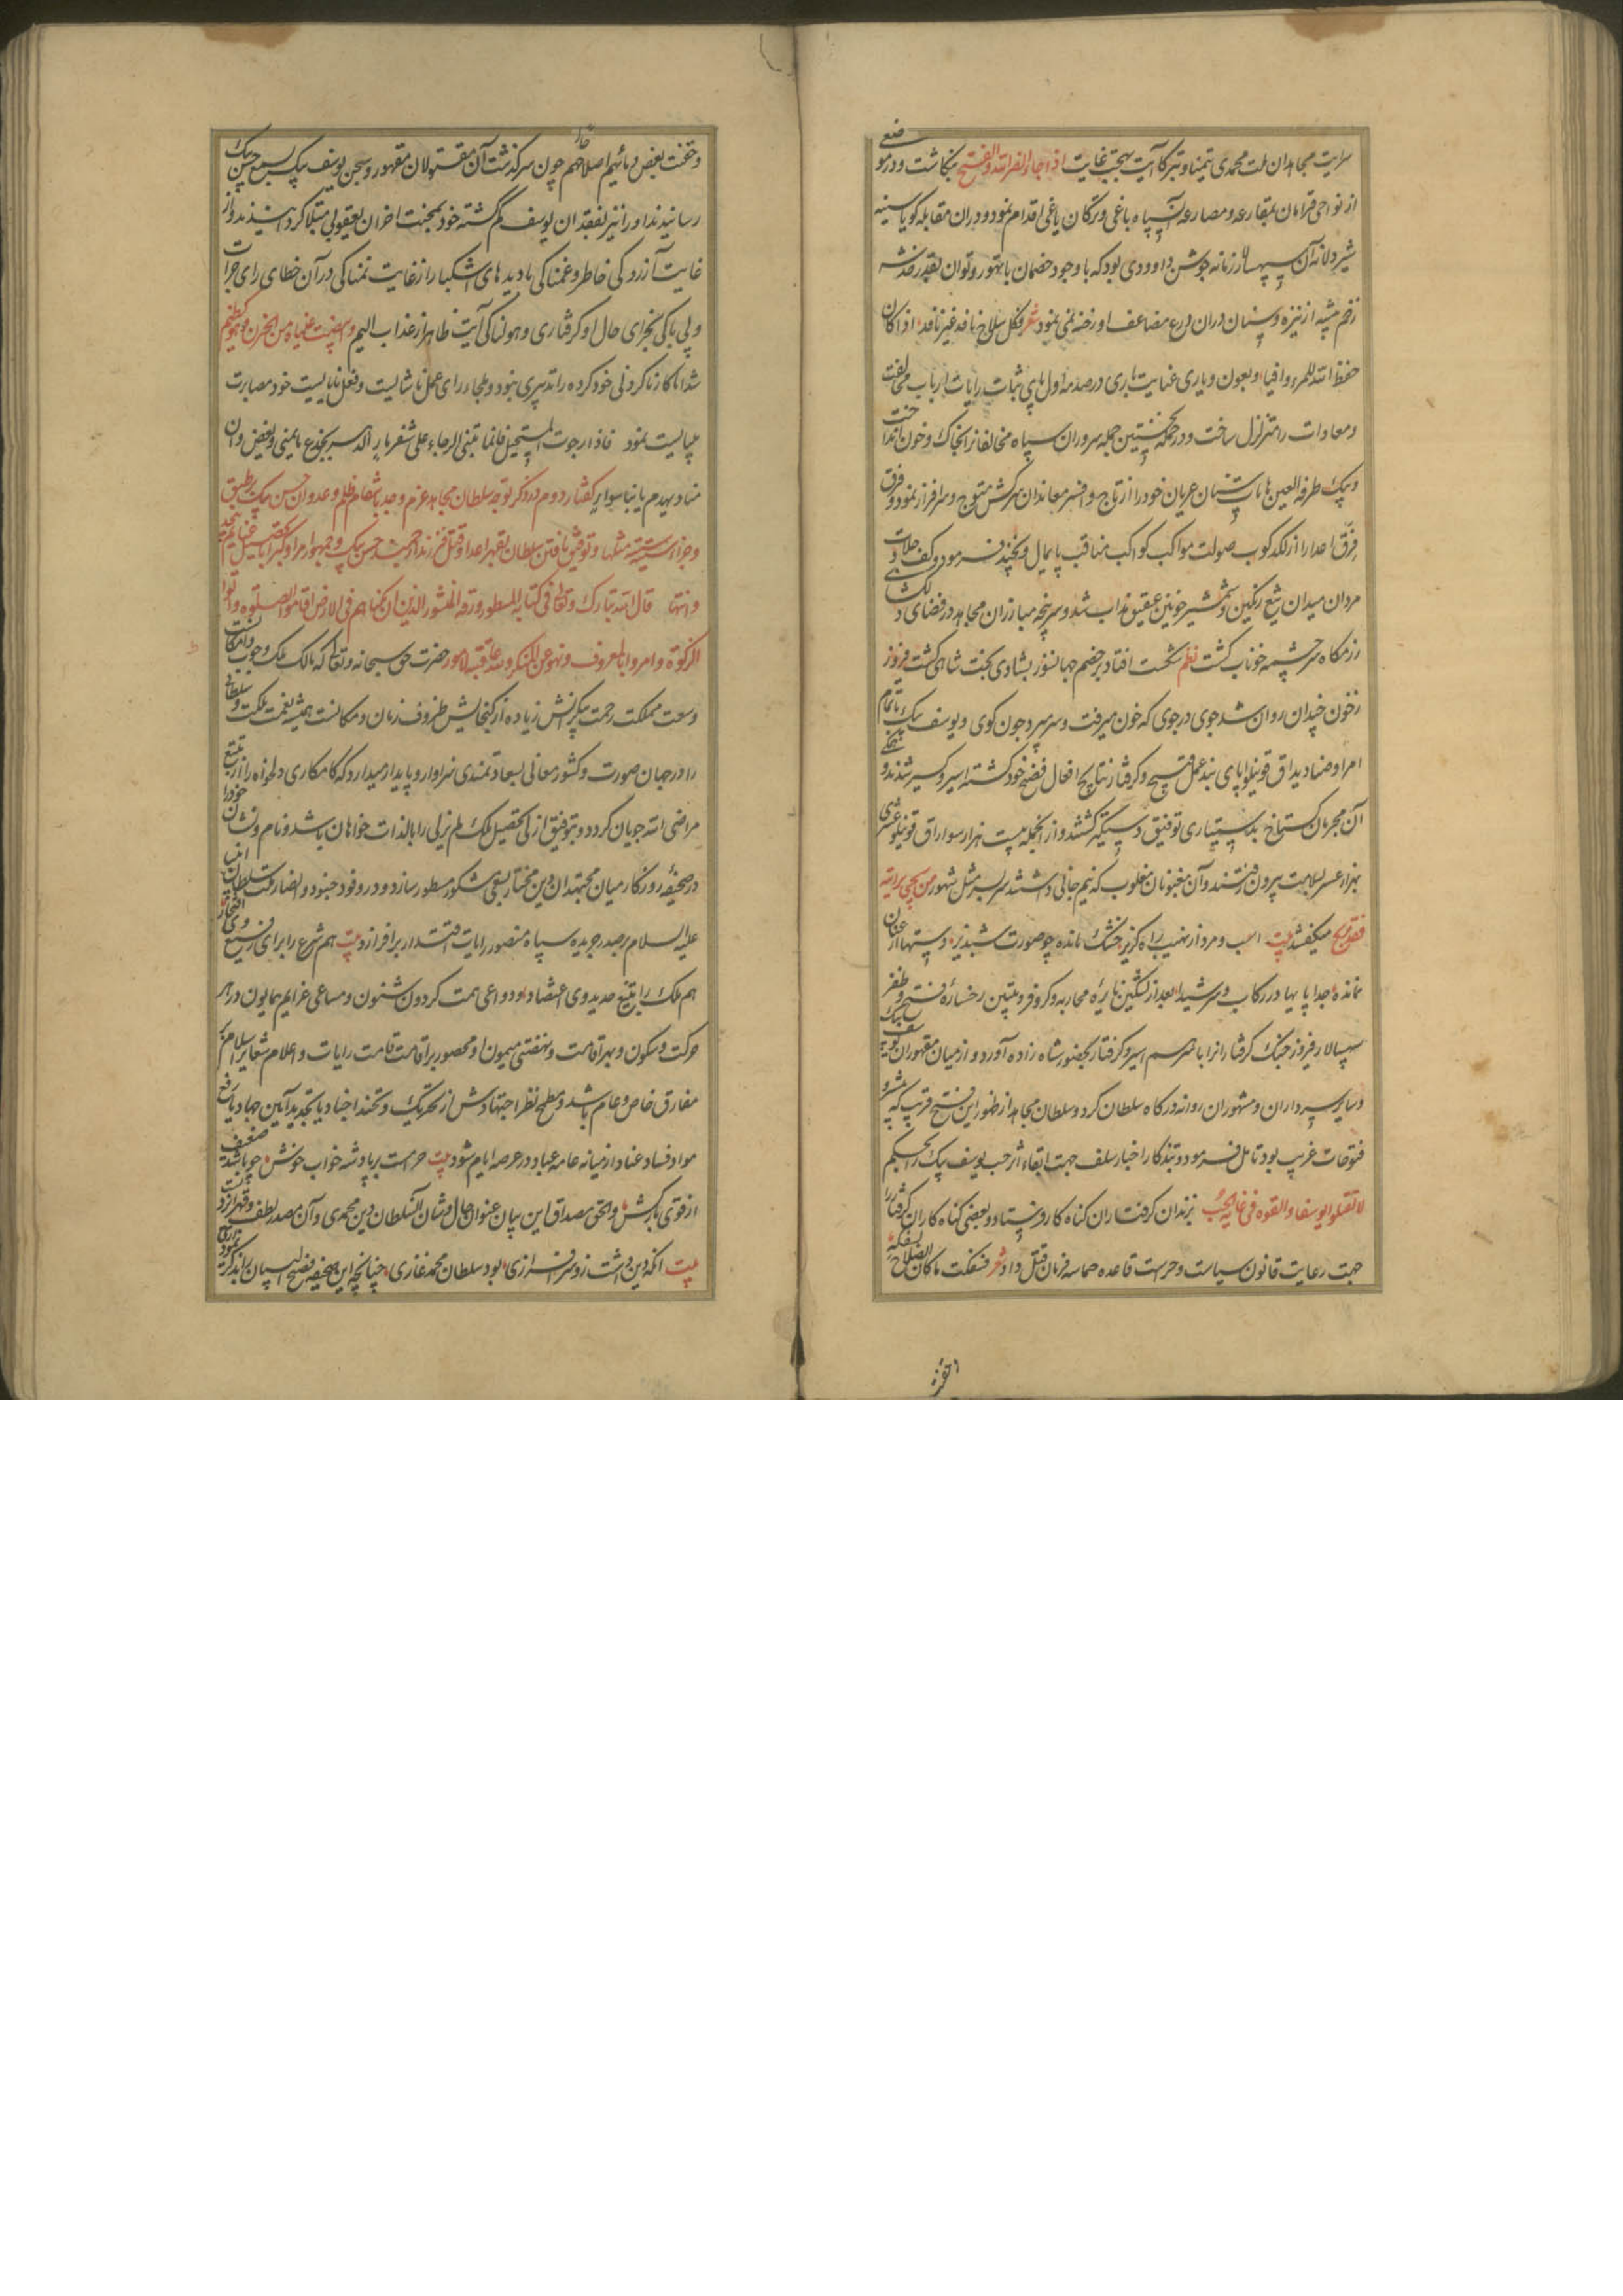 سرایت مجاهدان ملت محمدی تیمنا و تبرکا آیت بهجت غایت اذا جاء نصر الله والفتح بنکاشت و در موضعی
از نواحی قرامان بمقارعه و مصارعه آن سپاه باغی و ترکان یاغی اقدام نمود و در ان مقابله کویا سینه
شیر دلانه آن سپهسالار زمانه جوشن داوودی بود که با وجود خصمان با تهور و توان بقدر خدشه
زخم پیشه از نیزه و سنان در ان درع مضاعف او رخنه نمی نمود شعر فکل سلاح نافذ غیر نافذ اذا کان
حفظ الله للمرء واقیا و بعون و یاری عنایت باری در صدمه اول پای ثبات رایات ارباب مخالفت
و معادات را متزلزل ساخت و در حمله نخستین جمله سروران سپاه مخالفانرا بخاک و خون انداخت
و بیک طرفه العین هامات سنان عریان خود را از تاج و افسر معاندان سرکش متوج و سرافراز نمود و فرق
فرق اعدا را از لکدکوب صولت مواکب کواکب مناقب پایمال و بخچند فرمود و کف جلادت
مردان میدان تیغ رنکین و شمشیر خونین عقیق مذاب شد و سرپنجه مبارزان مجاهد در فضای دلکشای
رزمکاه سرچشمه خوناب کشت نظم شکست افتاد بر خصم جهانسوز بشادی بخت شاهی کشت فیروز
ز خون چندان روان شد جوی در جوی که خون میرفت و سر میبرد چون کوی و یوسف بیک با تمام
امرا و صنادید اق قوینلو پای بند عمل قبیح و کرفتار نتایج افعال فضیح خود کشته اسیر و کسیر شدند و
آن مجرمان کستاخ بدستیاری توفیق دستکیر کشتند و از انجمله بیست هزار سوار اق قوینلو عشری
بهزار عسر بسلامت بیرون رفتند و آن مغبونان مغلوب که نیم جانی داشتند سربسر مثل مشهور من نجی براسه
فقد ربح میکفتند بیت اسب و مرد از نهیب راه کریز خشک مانده چو صورت شبدیز دستها از عنان
نمانده جدا پایها در رکاب و سر شیدا بعد از تسکین نایره محاربه و کر و فر و تبیین رخساره فتح و ظفر
سپهسالار فیروز جنک کرفتارانرا با مراسم اسیر و کرفتار بحضور شاه زاده آورد و از میان مقهوران یوسف بیک
و سایر سرداران و مشهوران روانه درکاه سلطان کرد و سلطان مجاهد از ظهور این فتح قریب که مبشر
فتوحات غریب بود تامل فرمود و بتذکار اخبار سلف جهت ابقاء اثر حب یوسف بیک را بحکم
لا تقتلوا یوسف والقوه فی غیابة الجب بزندان کرفتاران کناه کار فرستاد و بعضی کناه کاران کرفتار را
جهت رعایت قانون سیاست و حراست قاعده حماسه فرمان قتل داد شعر فسفکت ما کان الصلاح بسفکه
و حقنت بعض دمائهم اصلاحهم چون سرکذشت آن مقتولان مقهور و سجن یوسف بیک بسمع حسن بیک
رسانیدند او را نیز بفقدان یوسف کم کشته خود بمحنت احزان یعقوبی مبتلا کردانیدند و از
غایت آزردکی خاطر و غمناکی با دیدهای اشکبار از غایت نمناکی در آن خطای رای جرات
و بی باکی بخزای حال او کرفتاری و هولناکی آیت ظاهر از عذاب الیم وابیضت عیناه من الحزن فهو کظیم
شد اما کار ناکردنی خود کرده را تدبیری نبود و ملجا ورای عمل ناشایست و فعل نابایست خود مصابرت
میبایست نمود فاذا رجوت المستحیل فانما تبنی الرجاء علی شفیر هار
وجزاء سیئة سیئة مثلها و توفیق یافتن سلطان بقهر اعدا و قتل فرزند ارجمند حسن بیک و جمهور امرا
قال الله تبارک وتعالی فی کتابه المسطور ورقه المنشور الذین ان مکناهم فی الارض اقاموا الصلوة واتوا
الزکوة وامروا بالمعروف ونهوا عن المنکر ولله عاقبة الامور حضرت حق سبحانه و تعالی که مالک ملک وجوب و امکانست
وسعت مملکت رحمت بیکرانش زیاده از کنجایش ظروف زمان و مکانست همیشه نعمت ملکت و سلطانی
را در جهان صورت و کشور معانی بسعادتمندی سزاوار و پایدار میدارد که کامکاری دلخواه را از تتبع
مراضی الله جویان کردد و بتوفیق ازلی تحصیل ملک لم یزلی را بالذات خواهان باشد و نام و نشان خود را
در صحیفه روزکار میان مجتهدان دین مختار بسعی مشکور مسطور سازد و در وفود جنود و انصار ملت سلطان انبیا
علیه السلام بر صدر جریده سپاه منصور رایات اقتدار برافرازد بیت هم شرع را برای رفیع وی افتخار
هم ملک را بتیغ حدید وی اعتضاد و دواعی همت کردون شئون و مساعی عزایم همایون در هر
حرکت و سکون و بهر اقامت و نهضتی میمون او محصور بر اقامت قامت رایات و اعلام شعایر اسلام بر
مفارق خاص و عام باشد و مطمح نظر اجتهادش از تحریک و تجنید اجناد یا تجدید آیین جهاد یا رفع
مواد فساد و عناد از میانه عامه عباد در عرصه ایام شود بیت حرامست بر پادشه خواب خوش چو باشد ضعیف
از قوی بارکش والحق مصداق این بیان عنوان حال و شان آن سلطان دین محمدی و آن مصدر لطف و قهر ایزدیست
بیت انکه دین داشت زو سرافرازی بود سلطان محمد غازی چنانچه این صحیفه فصیح البیان